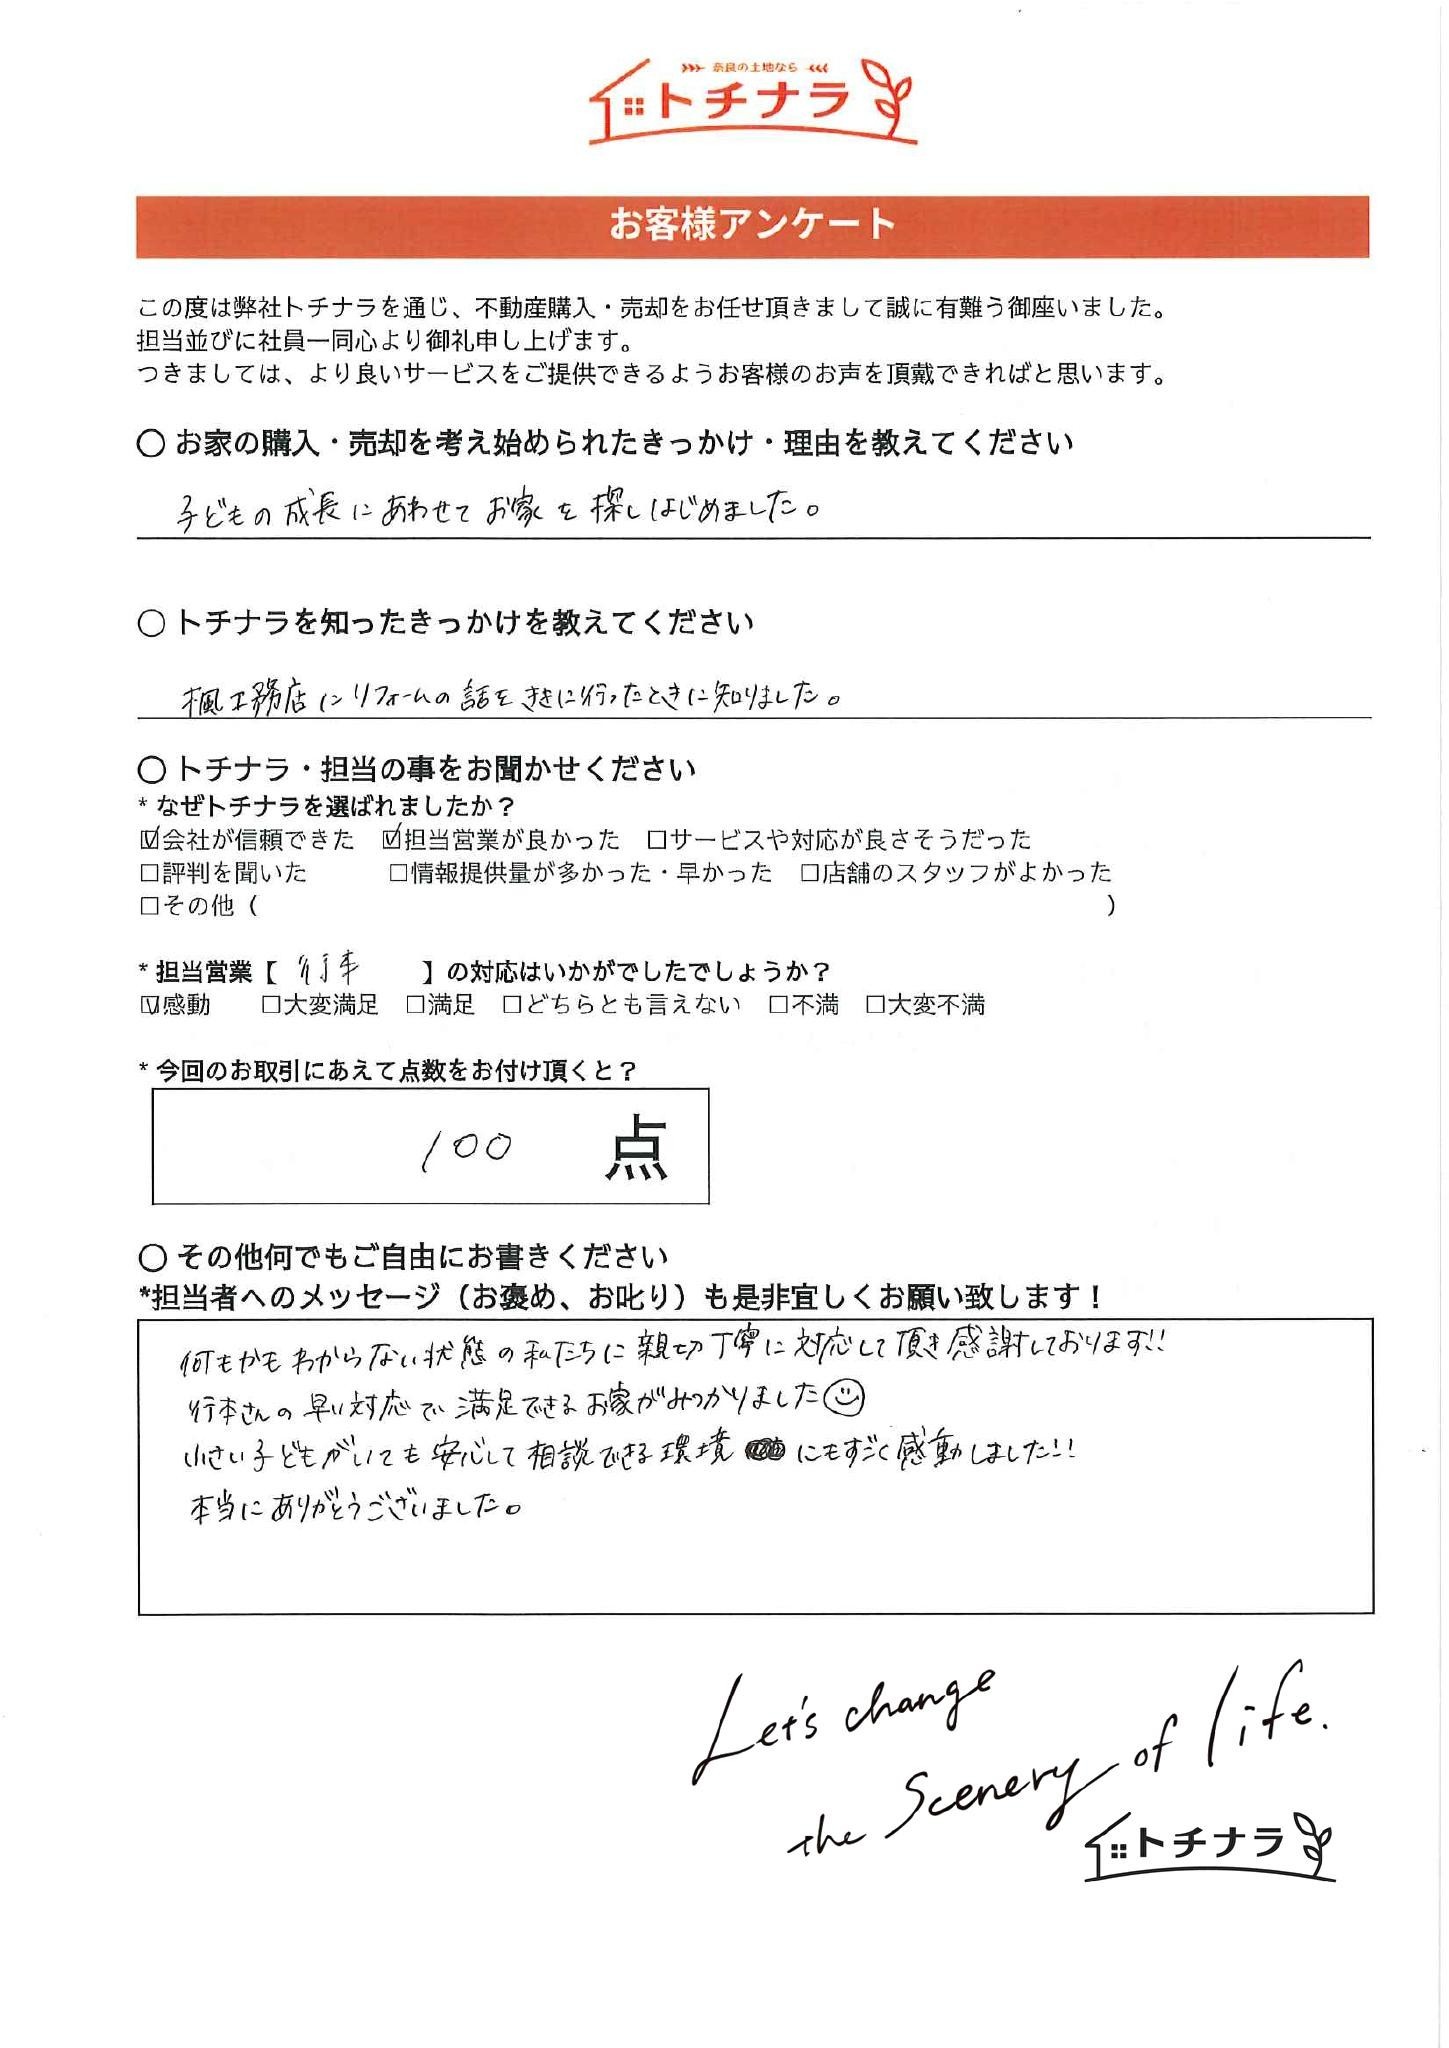 奈良の土地なら
トチナラ
お客様アンケート
この度は弊社トチナラを通じ、不動産購入・売却をお任せ頂きまして誠に有難う御座いました。
担当並びに社員一同心より御礼申し上げます。
つきましては、より良いサービスをご提供できるようお客様のお声を頂戴できればと思います。
○ お家の購入・売却を考え始められたきっかけ・理由を教えてください
子どもの成長にあわせてお家を探しはじめました。
○ トチナラを知ったきっかけを教えてください
楓工務店にリフォームの話をききに行ったときに知りました。
○ トチナラ・担当の事をお聞かせください
* なぜトチナラを選ばれましたか？
☑会社が信頼できた ☑担当営業が良かった □サービスや対応が良さそうだった
□評判を聞いた □情報提供量が多かった・早かった □店舗のスタッフがよかった
□その他（ ）
* 担当営業【 行本 】の対応はいかがでしたでしょうか？
☑感動 □大変満足 □満足 □どちらとも言えない □不満 □大変不満
* 今回のお取引にあえて点数をお付け頂くと？
100 点
○ その他何でもご自由にお書きください
*担当者へのメッセージ（お褒め、お叱り）も是非宜しくお願い致します！
何もかもわからない状態の私たちに親切丁寧に対応して頂き感謝しております!!
行本さんの早い対応で満足できるお家がみつかりました☺
小さい子どもがいても安心して相談できる環境にもすごく感動しました!!
本当にありがとうございました。
Let's change
the Scenery of life.
トチナラ